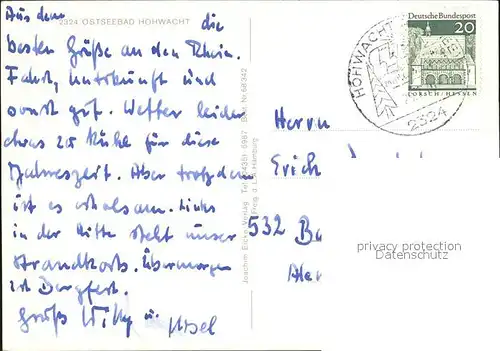 Aus dem
2324 OSTSEEBAD HOHWACHT die
besten Grüße an den Rhein.
Fahrt, Unterkunft und
sonst gut. Wetter leider
etwas zu kühl für diese
Jahreszeit. Aber trotzdem
ist es erholsam. Links
in der Mitte steht unser
Strandkorb. Übermorgen
ist Burgfest.
Grüße Willy u.
Ursel
Joachim Eicke Verlag Tel. (04351) 5987 Best. Nr. 68342
Freig. d. L.A. Hamburg
HOHWACHT
2324
Deutsche Bundespost
20
LORSCH HESSEN
Herrn
Erich
532 Ba
privacy protection
Datenschutz